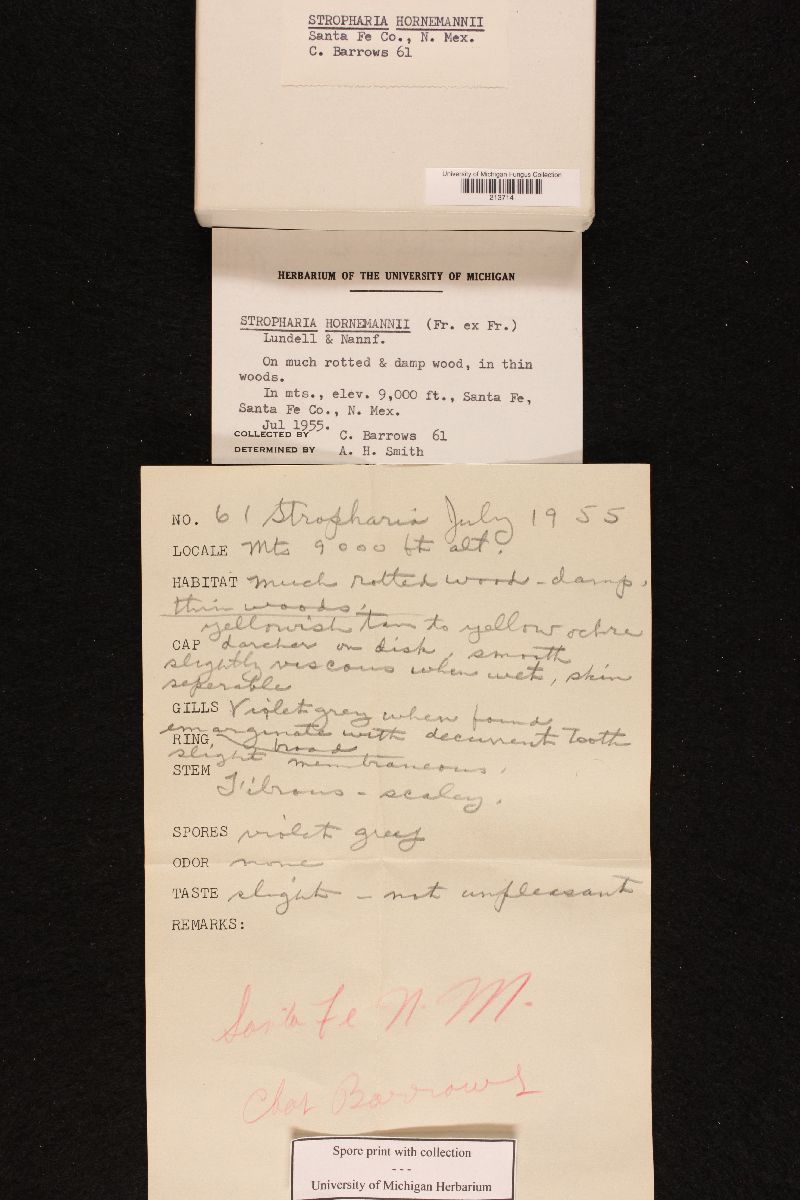 STROPHARIA HORNEMANNII
Santa Fe Co., N. Mex.
C. Barrows 61
University of Michigan Fungus Collection
213714
HERBARIUM OF THE UNIVERSITY OF MICHIGAN
STROPHARIA HORNEMANNII (Fr. ex Fr.)
Lundell & Nannf.
On much rotted & damp wood, in thin
woods.
In mts., elev. 9,000 ft., Santa Fe,
Santa Fe Co., N. Mex.
Jul 1955.
COLLECTED BY C. Barrows 61
DETERMINED BY A. H. Smith
NO. 61 Stropharia July 1955
LOCALE Mts 9000 ft alt.
HABITAT much rotted wood - damp,
thin woods,
yellowish tan to yellow ochre
CAP darcher on disk, smooth
slightly viscous when wet, skin
seperable
GILLS Violet grey when found
emarginate with decurrent tooth
broad
RING slight membraneous,
STEM
Fibrous - scaley,
SPORES violet grey
ODOR none
TASTE slight - not unpleasant
REMARKS:
Santa Fe N. M.
Chas Barrows
Spore print with collection
---
University of Michigan Herbarium